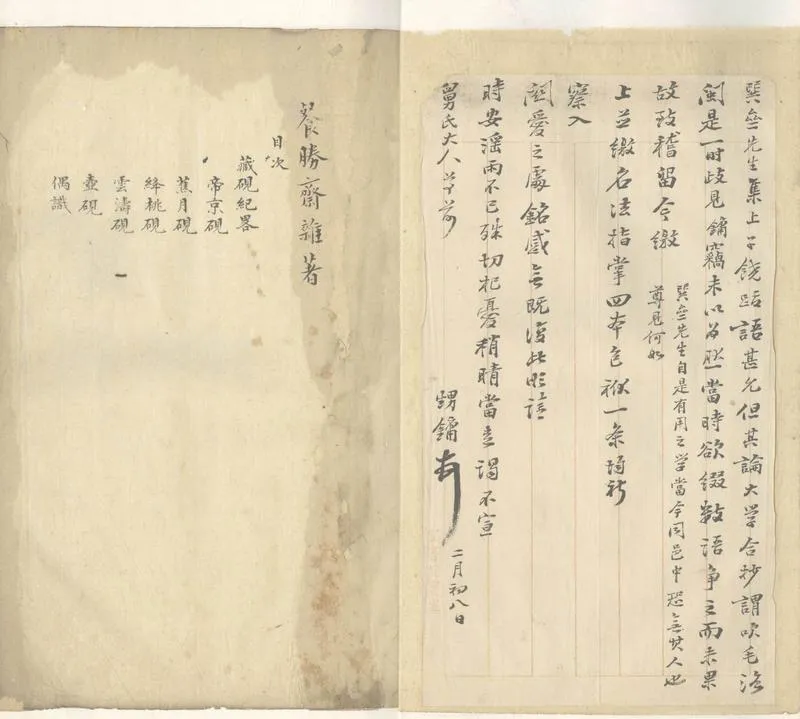 巽壘先生集上子饒跋語甚允但其論大学合抄謂吹毛洛
閩是一時歧見鏞竊未以為然當時欲綴數語争之而未果
故致稽留今繳
巽壘先生自是有用之学當今同邑中恐無其人也
尊見何如
上並繳名法指掌四本包袱一条培祈
察入
關愛之處銘感無既復此即請
時安淫雨不已殊切杞憂稍晴當走謁不宣
舅氏大人 前
甥鏞 二月初八日
餐勝齋雜著
目次
藏硯紀畧
帝京硯
蕉月硯
絳桃硯
雲濤硯
壺硯
偶識